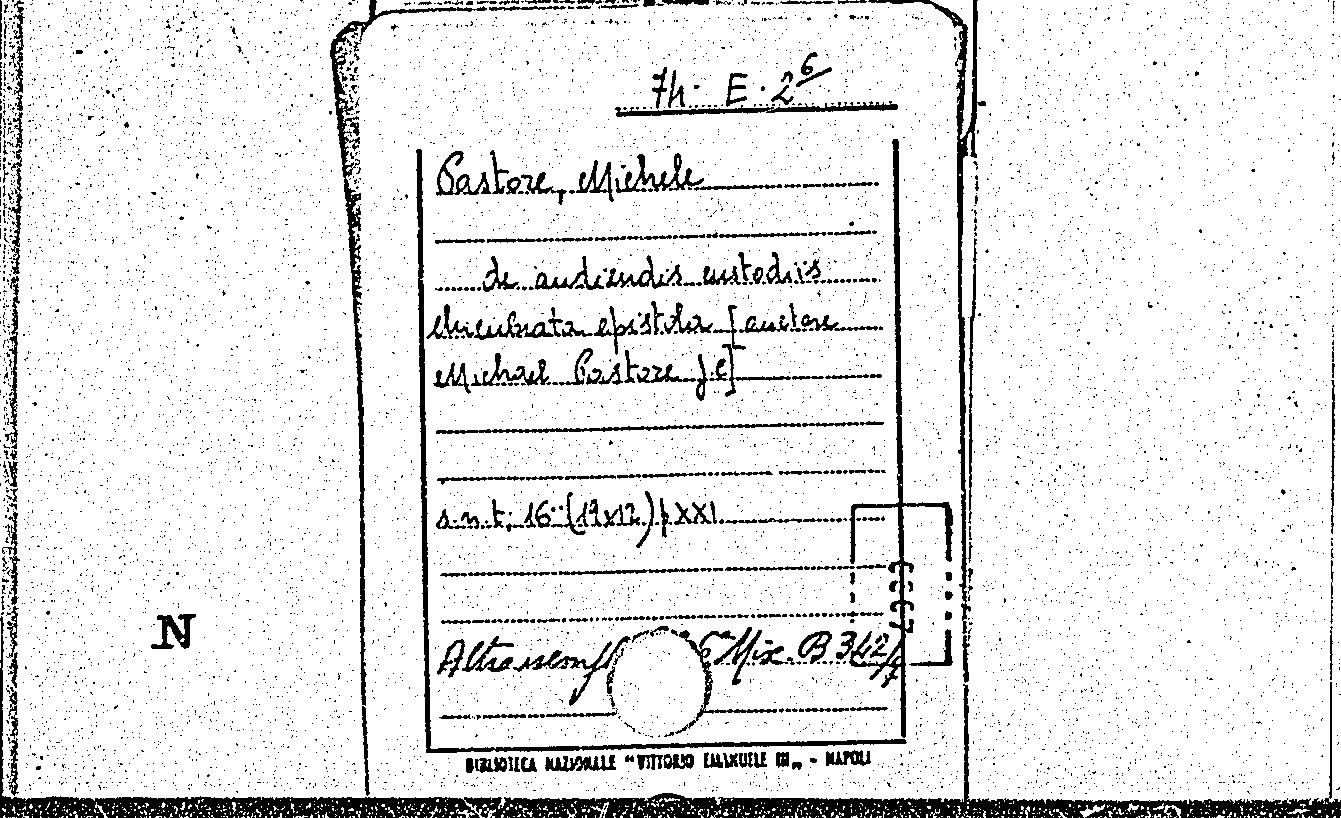 7h. E. 2⁶
Pastore, Michele
de audiendis custodiis
elucubrata epistola [auctore
Michael Pastore J.C]
s.n.t; 16° (19x12) p XXI
N
Altra Misc. B 342/
BIBLIOTECA NAZIONALE "VITTORIO EMANUELE III„ - NAPOLI